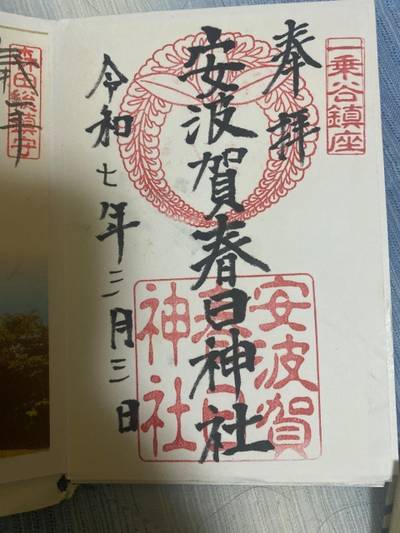 一乗谷鎮座
奉拝
安波賀春日神社
安波賀
春日
神社
令和七年三月三日